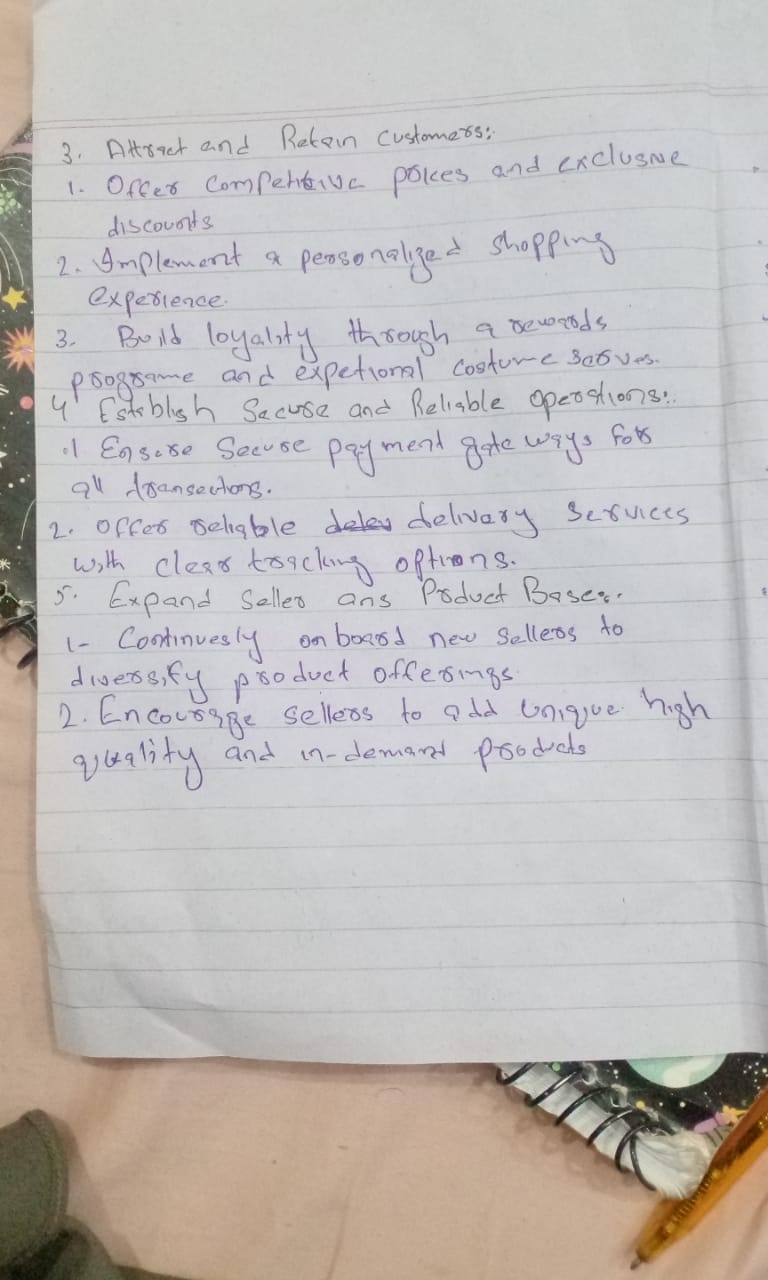 3. Attract and Retain Customers:
1. Offer Competitive prices and exclusive
discounts
2. Implement a personalized shopping
experience.
3. Build loyality through a rewards
programe and expetional costume serves.
4 Establish Secure and Reliable operations:
1 Ensure Secure payment gate ways for
all transections.
2. Offer reliable delivery Services
with clear tracking options.
5. Expand Seller ans Product Base:
1- Continuesly onboard new Sellers to
diversify product offerings.
2. Encourage Sellers to add Unique high
quality and in-demand products